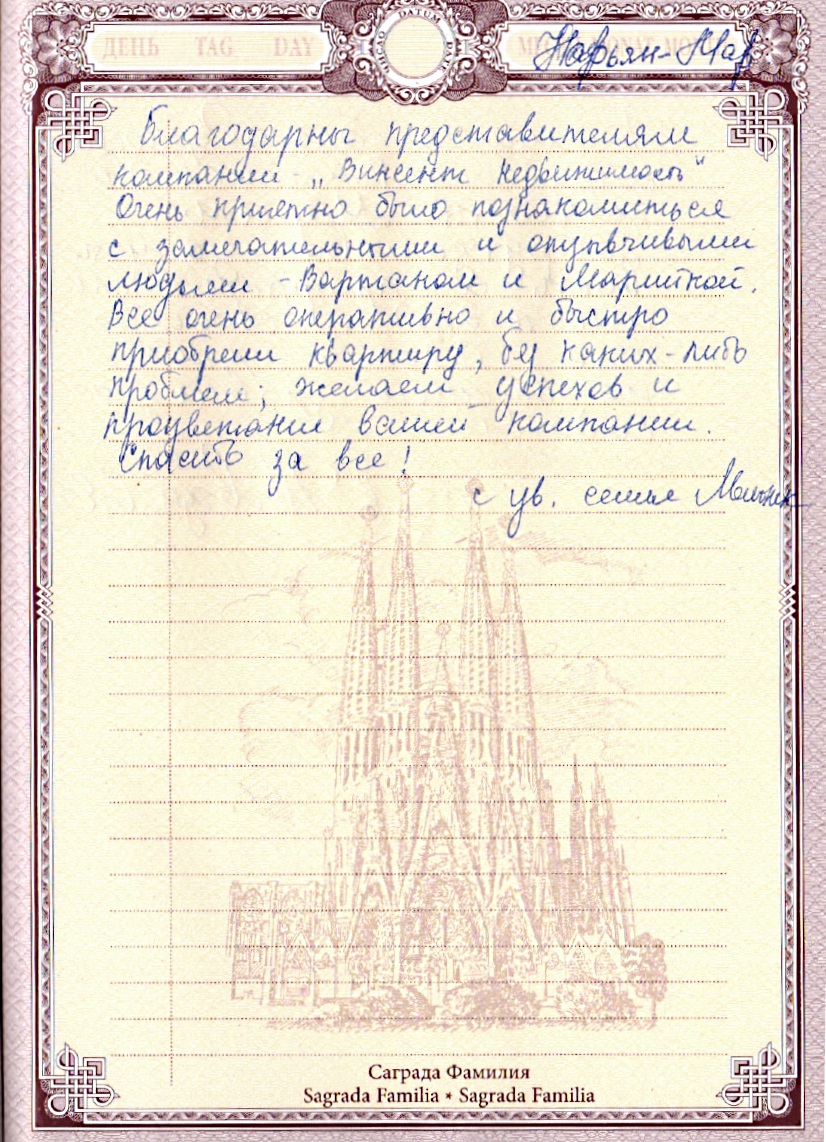 ДЕНЬ TAG DAY ЧИСЛО DATUM DATE
Нарьян-Мар
Благодарны представителям
компании „Винсент Недвижимость"
Очень приятно было познакомиться
с замечательными и отзывчивыми
людьми - Вартаном и Мариткой.
Все очень оперативно и быстро
приобрели квартиру, без каких-либо
проблем; желаем успехов и
процветания вашей компании.
Спасибо за все!
с ув. семья
Саграда Фамилия
Sagrada Familia * Sagrada Familia